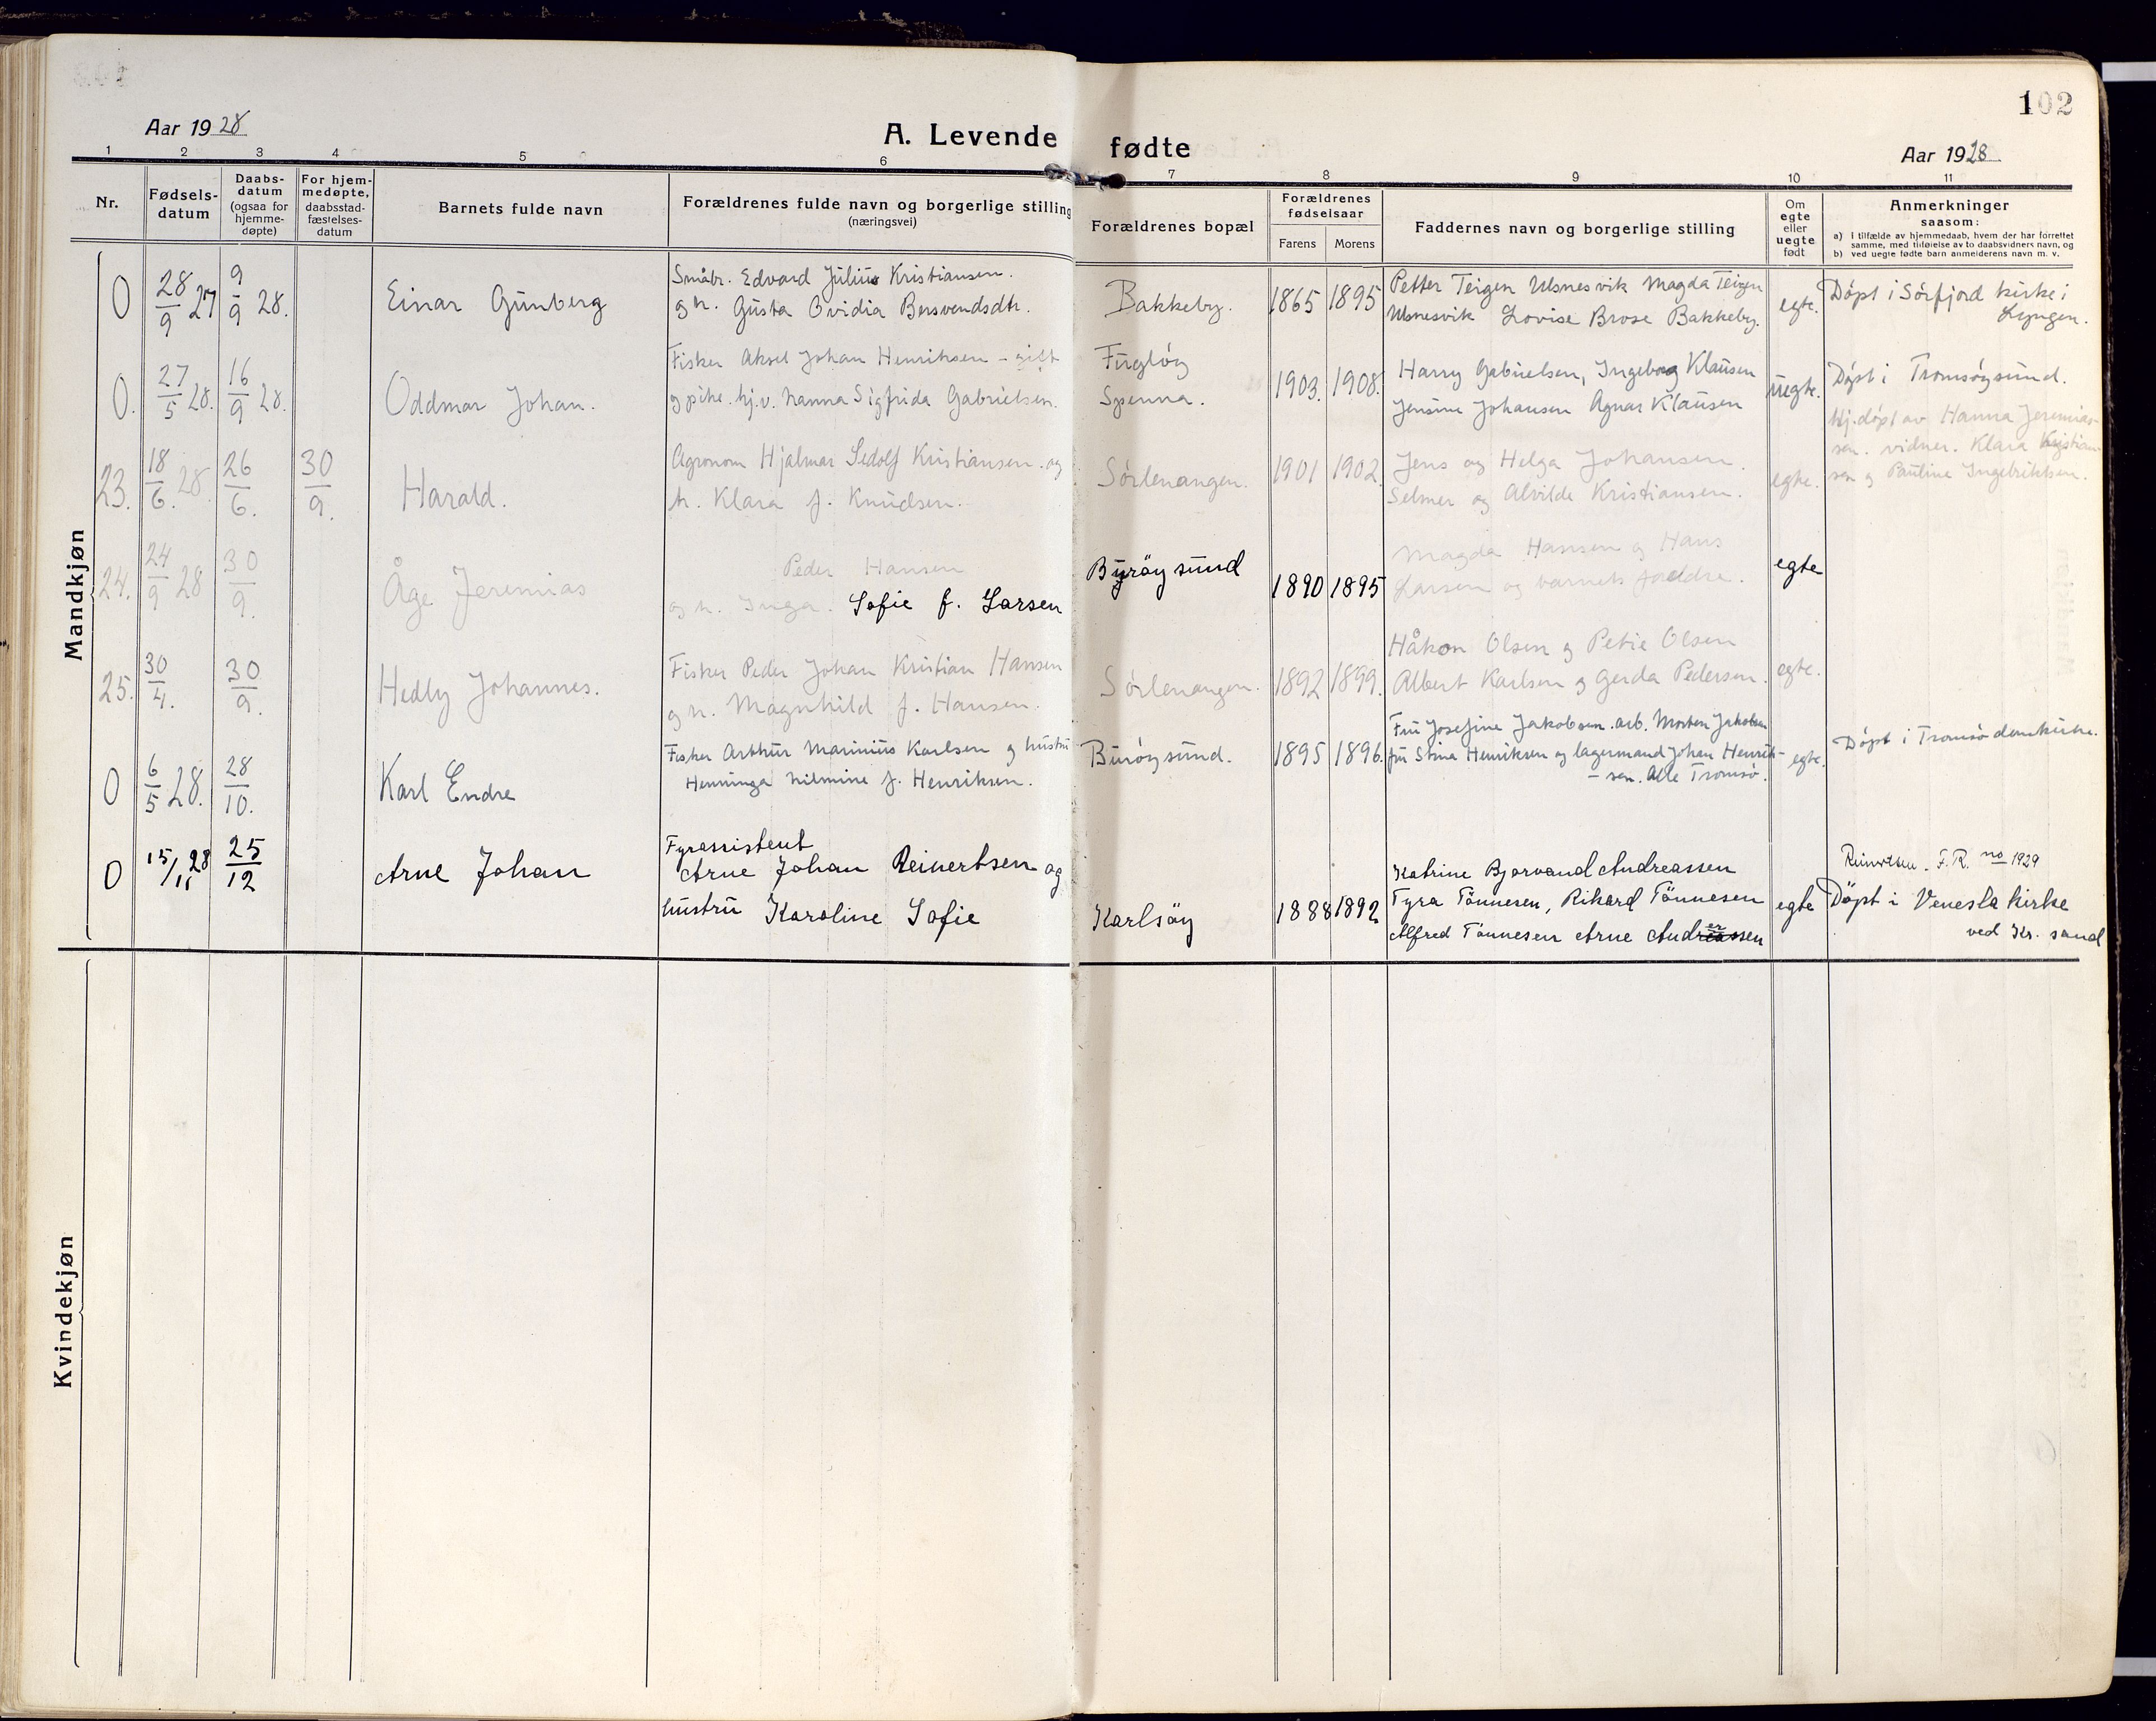 102
Aar 1928
A. Levende fødte
Aar 1928
1 2 3 4 5 6 7 8 9 10 11
Nr.
Fødsels-
datum
Daabs-
datum
(ogsaa for
hjemme-
døpte)
For hjem-
medøpte,
daabsstad-
fæstelses-
datum
Barnets fulde navn
Forældrenes fulde navn og borgerlige stilling
(næringsvei)
Forældrenes bopæl
Forældrenes
fødselsaar
Farens Morens
Faddernes navn og borgerlige stilling
Om
egte
eller
uegte
født
Anmerkninger
saasom:
a) i tilfælde av hjemmedaab, hvem der har forrettet
samme, med tilføielse av to daabsvidners navn, og
b) ved uegte fødte barn anmelderens navn m. v.
Mandkjøn
0 28/9 27 9/9 28.
Einar Gunberg
Småbr. Edvard Julius Kristiansen.
og h. Gusta Ovidia Bersvendsdtr.
Bakkeby.
1865 1895
Petter Teigen Ulsnesvik Magda Teigen
Ulsnesvik Lovise Brose Bakkeby.
egte.
Döpt i Sörfjord kirke i
Lyngen.
0. 27/5 28. 16/9 28.
Oddmar Johan.
Fisker Aksel Johan Henriksen – gift
og pike. hj.v. Hanna Sigfrida Gabrielsen.
Fuglöy
Spenna.
1903. 1908.
Harry Gabrielsen, Ingeborg Klausen
Jensine Johansen Agnar Klausen
uegte.
Döpt i Tromsöysund.
23. 18/6. 28. 26/6. 30/9.
Harald.
Agronom Hjalmar Sedolf Kristiansen. og
h. Klara f. Knudsen.
Sörlenangen.
1901 1902.
Jens og Helga Johansen.
Selmer og Alvilde Kristiansen.
egte.
Hj.döpt av Hanna Jeremias-
sen. vidner. Klara Kristian-
sen og Pauline Ingebriktsen.
24. 24/9 28 30/9.
Åge Jeremias
Peder Hansen
og h. Inga. Sofie f. Larsen
Buröysund
1890 1895
Magda Hansen og Hans
Larsen og barnets foreldre.
egte
25. 30/4. 30/9.
Hedly Johannes.
Fisker Peder Johan Kristian Hansen
og h. Magnhild f. Hansen.
Sörlenangen.
1892 1899.
Håkon Olsen og Petie Olsen
Albert Karlsen og Gerda Pedersen.
egte.
0 6/5 28. 28/10.
Karl Endre
Fisker Arthur Marinius Karlsen og hustru
Henninga Hilmine f. Henriksen.
Buröysund.
1895 1896.
Fru Josefine Jakobsen. arb. Morten Jakobsen
fru Stina Henriksen og lagermand Johan Henrik-
– sen. Alle Tromsö.
egte.
Döpt i Tromsö domkirke.
0 15/11 28 25/12
Arne Johan
Fyrassistent
Arne Johan Reinertsen og
hustru Karoline Sofie
Karlsöy
1888 1892
Katrine Bjorvand Andreassen
Tyra Tönnesen, Rikard Tönnesen
Alfred Tönnesen Arne Andreassen
egte
Reinertsen. F.R. no 1929
Döpt i Venesla kirke
ved Kr. sand
Kvindekjøn